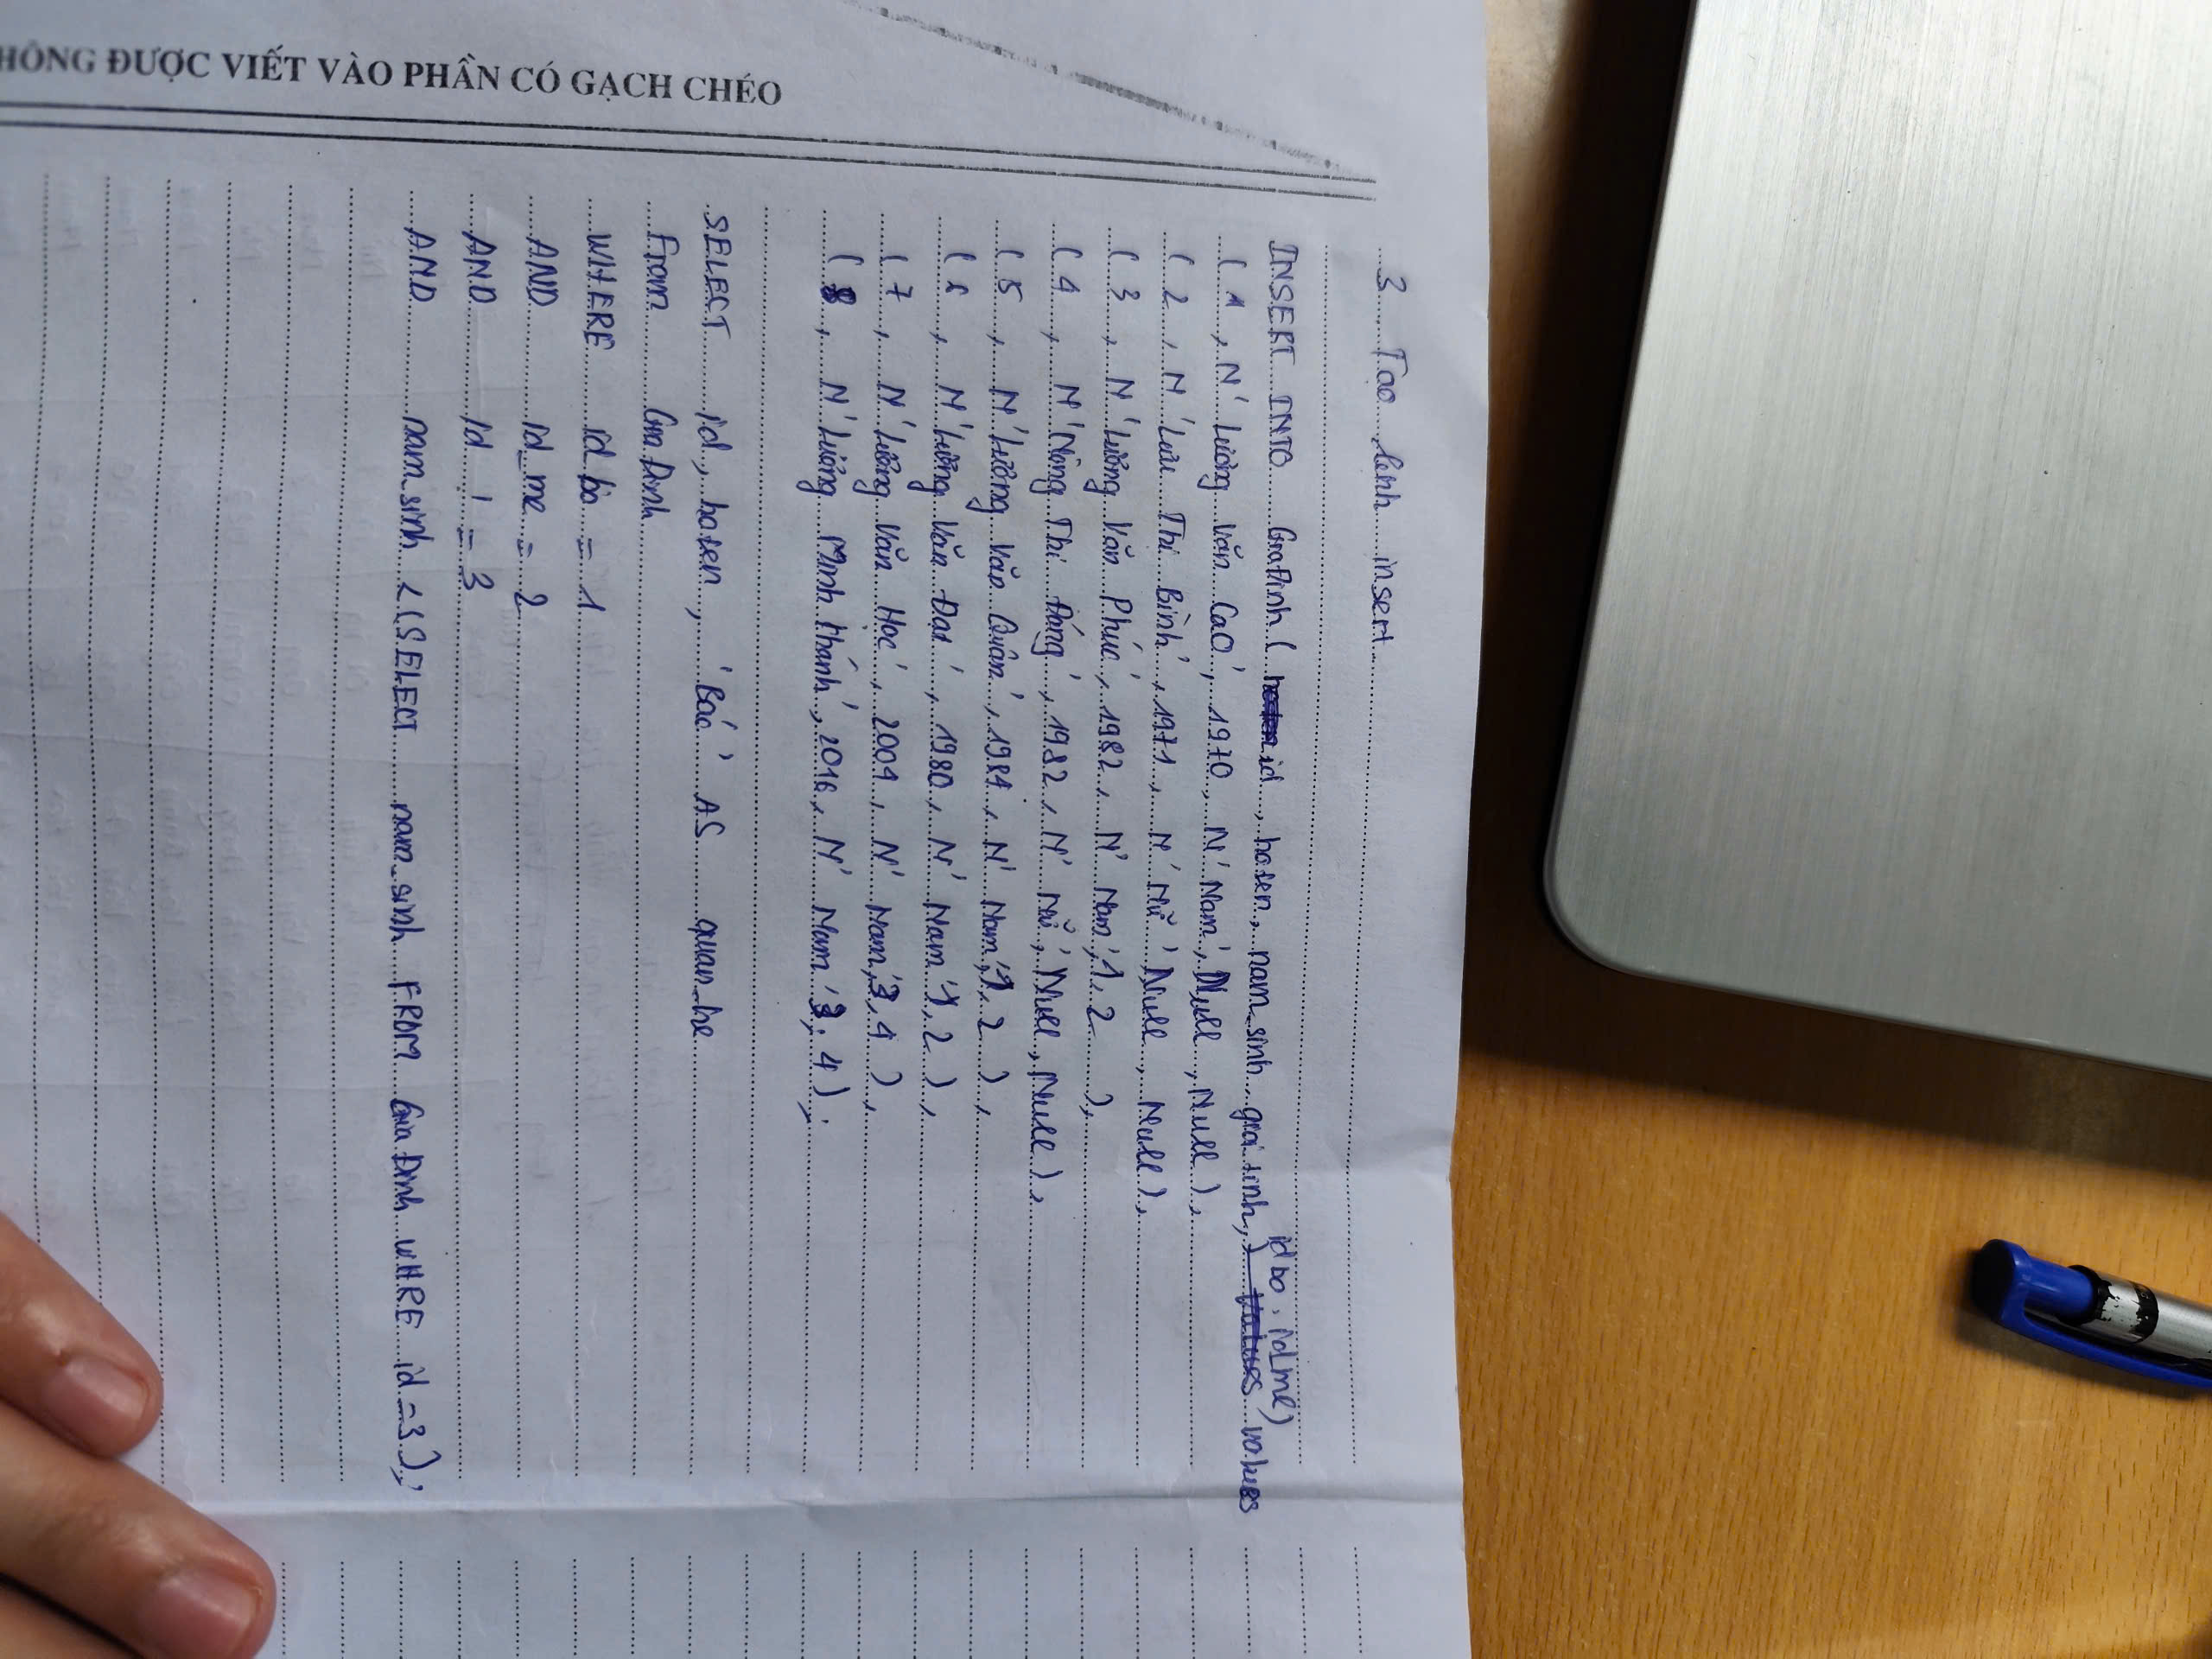 HÔNG ĐƯỢC VIẾT VÀO PHẦN CÓ GẠCH CHÉO
3 Tạo lệnh insert
INSERT INTO GiaDinh ( id, hoten, nam_sinh gioitinh, id bo, id_me) values
( 1, N' Lường Văn Cao', 1970, N' Nam', Null, Null),
( 2, N' Lưu Thị Bình', 1971, N' Nữ' Null, Null),
( 3, N' Lường Văn Phúc', 1982, N' Nam', 1, 2 ),
( 4, N' Nông Thị Đóng', 1982, N' Nữ', Null, Null),
( 5, N' Lường Văn Quân', 1984, N' Nam', 1, 2 ),
( 6, N' Lường Văn Đạt', 1980, N' Nam' 1, 2 ),
( 7, N' Lường Văn Học', 2004, N' Nam', 3, 4 ),
( 8, N' Lường Minh Khánh', 2016, N' Nam' 3, 4 );
SELECT id, hoten, 'Bác' AS quan_he
From Gia Dinh
WHERE id bo = 1
AND id_me = 2
AND id != 3
AND nam_sinh < (SELECT nam_sinh FROM Gia Dinh WHRE id = 3);